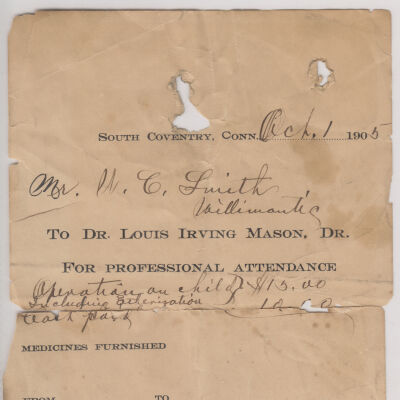 South Coventry, Conn. Oct. 1 1905
Mr. W. C. Smith,
Willimantic
To Dr. Louis Irving Mason, Dr.
For professional attendance
Operation on child $15.00
Including etherization 10.00
Cash paid
Medicines furnished
From To